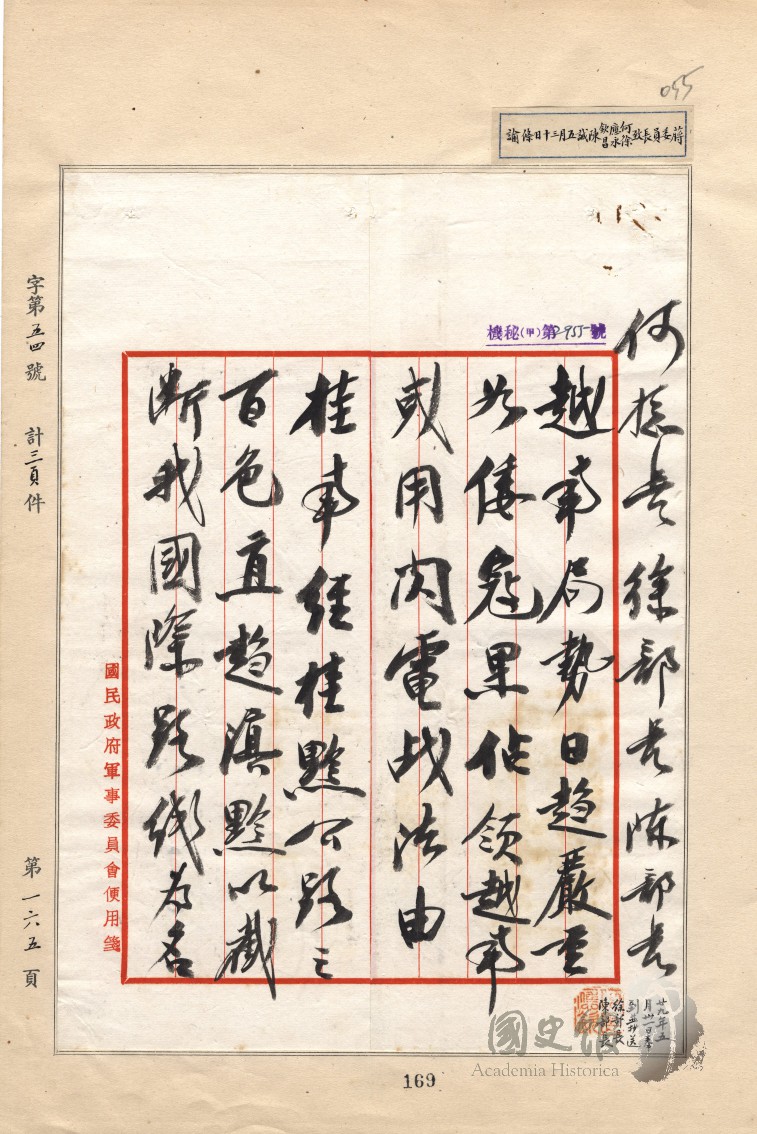 055
蔣委員長致何應欽徐永昌陳誠五月三十日條諭
機秘(甲)第2955號
何總長徐部長陳部長
越南局勢日趨嚴重
如倭寇果佔領越南
或用閃電战法由
桂南經桂黔公路之
百色直趨滇黔以截
斷我國際路线為名
國民政府軍事委員會便用箋
字第五四號 計三頁件
第一六五頁
廿九年五
月卅一日奉
到並抄送
徐部長
陳部長
國史館
Academia Historica
169